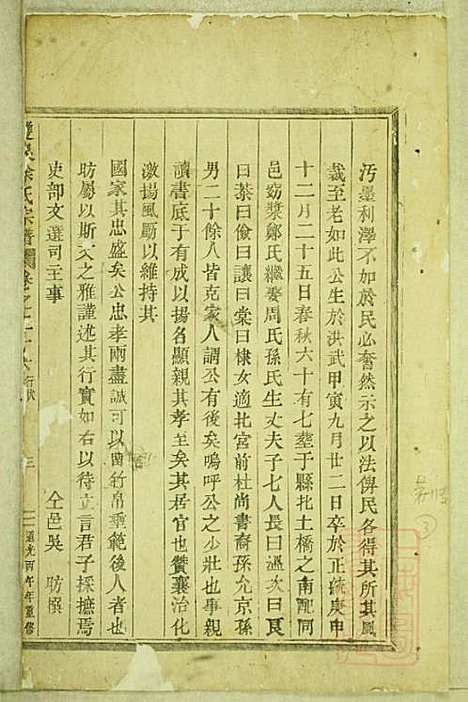 汚墨利澤不如於民必奮然示之以法俾民各得其所其風
裁至老如此公生於洪武甲寅九月廿二日卒於正統庚申
十二月二十五日春秋六十有七塟于縣北土橋之南配同
邑窈槳鄭氏繼娶周氏孫氏生丈夫子七人長曰遜次曰良
曰恭曰儉曰讓曰棠曰棣女適北宮前杜尚書裔孫允京孫
男二十餘人皆克家人謂公有後矣嗚呼公之少壯也事親
讀書底于有成以揚名顯親其孝至矣其居官也贊襄治化
激揚風厲以維持其
國家其忠盛矣公忠孝兩盡誠可以啚竹帛垂範後人者也
昉屬以斯文之雅謹述其行實如右以待立言君子採摭焉
吏部文選司主事 仝邑吳 昉撰
徐氏宗譜 卷之 行狀 三 道光丙午年重修